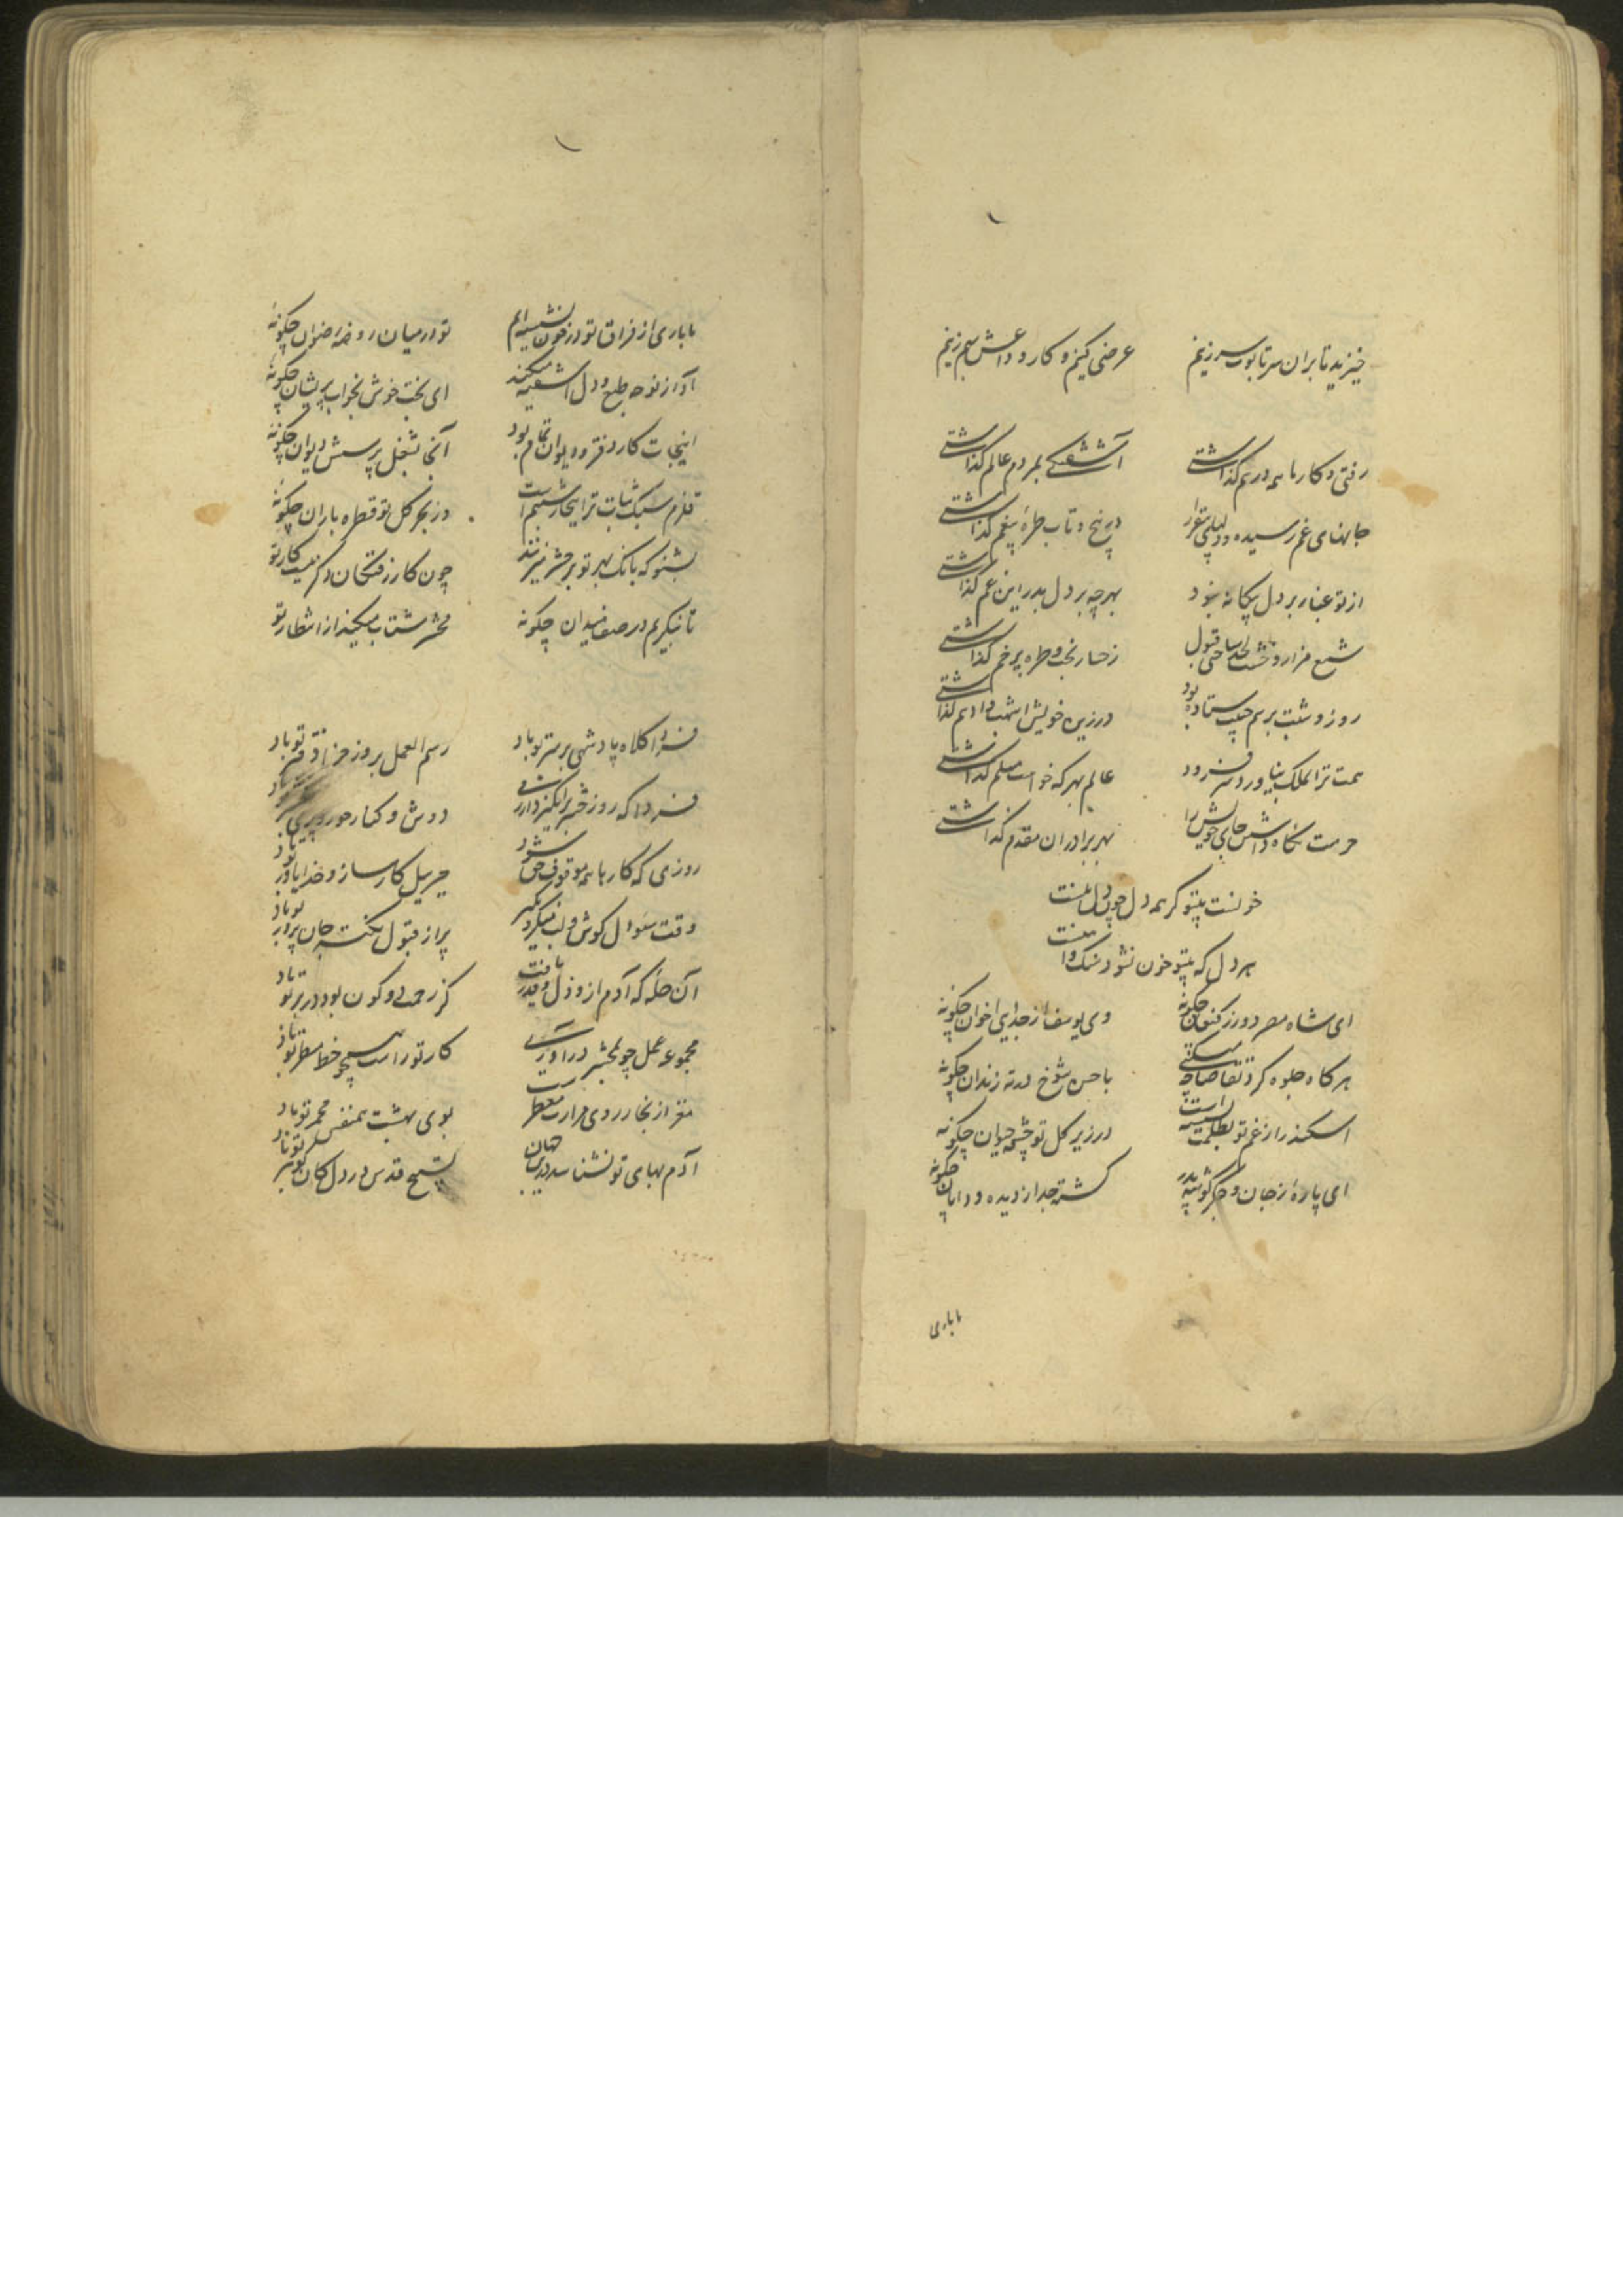 خیزید تا بران سر تابوت سر زنیم عرضی کنیم و کار وداعش بهم زنیم
رفتی و کارها همه درهم گذاشتی آشفتگی بمردم عالم گذاشتی
جانهای غم رسیده و دلهای بیقرار در پیچ و تاب طره پرخم گذاشتی
از تو غبار بر دل بیگانه نبود بهر چه بر دل پدر این غم گذاشتی
شمع مزار و خشت لحد ساختی قبول رخسار تخت و طره پرچم گذاشتی
روز و شبت بر هم چپ ستاده بود در زین خویش اشهب و ادهم گذاشتی
همت ترا بملک بنیاورد سر فرود عالم بهر که خواست مسلم گذاشتی
حرمت نگاه داشتی جای خویش را بهر برادران مقدم گذاشتی
خونست بیتو گر همه دل چون دل منست
هر دل که بیتو خون نشود سنگ و آهنست
ای شاه مصر دور ز کنعان چگونه وی یوسف از جدایی اخوان چگونه
هر گاه جلوه کرد تقاضا چه میکنی با حسن شوخ در ته زندان چگونه
اسکندر از غم تو بظلمت نشسته است در زیر گل تو چشمه حیوان چگونه
ای پاره ز جان و جگر گوشه پدر گشته جدا ز دیده و دامان چگونه
ما باری
ما باری از فراق تو در خون نشسته ایم تو در میان روضه رضوان چگونه
آواز نوحه طبع و دل آشفته میکند ای بخت خوش بخواب پریشان چگونه
اینجات کار دفتر و دیوان تمام بود آنجا بشغل پرسش دیوان چگونه
قلزم سبک شتاب ترا بخار شبنم است در بحر گل تو قطره باران چگونه
بشنو که بانگ بهر تو بر حشر میزنند چون کار رفتگان دگر نیست کار تو
تا بنگریم در صف میدان چگونه محشر شتاب میکند از انتظار تو
فردا کلاه پادشهی بر سر تو باد رسم العمل بروز جزا دفتر تو باد
فردا که روز حشر برانگیزد آدمی دوش و کنار حور و پری
روزی که کارها همه موقوف حق شود جبریل کارساز و خدا یاور تو باد
وقت سئوال گوش و لب منکر و نکیر پر از قبول نکته جان پرور تو باد
آن حله که آدم ازو ذل و قدر یافت کز رحمت دو کون بود در بر تو باد
مجموعه عمل چو بمحشر درآوری کار تو راست همچو خط مسطر تو باد
مغز از بخار روی مزارت معطر است بوی بهشت همنفس مجمر تو باد
آدم بهای تو نشناسد درین جهان تسبیح قدس در دل کان گوهر تو باد